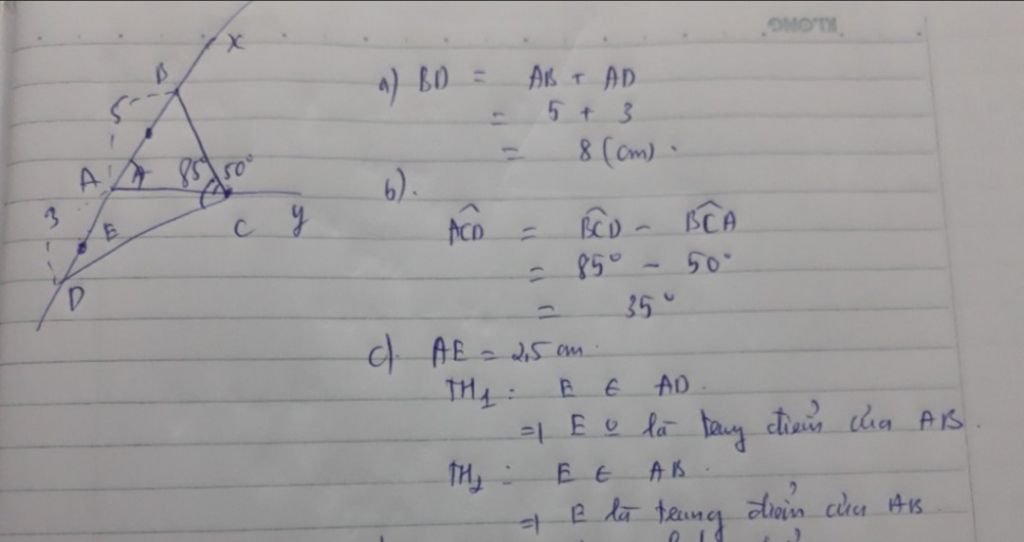 KTONG
x
B
5
A
85° 50°
3
E
C y
D
a) BD = AB + AD
= 5 + 3
= 8 (cm).
b).
ACD = BCD - BCA
= 85° - 50°
= 35°
c). AE = 2,5 cm.
TH1: E ∈ AD.
=> E là trung điểm của AB.
TH2: E ∈ AB.
=> E là trung điểm của AB